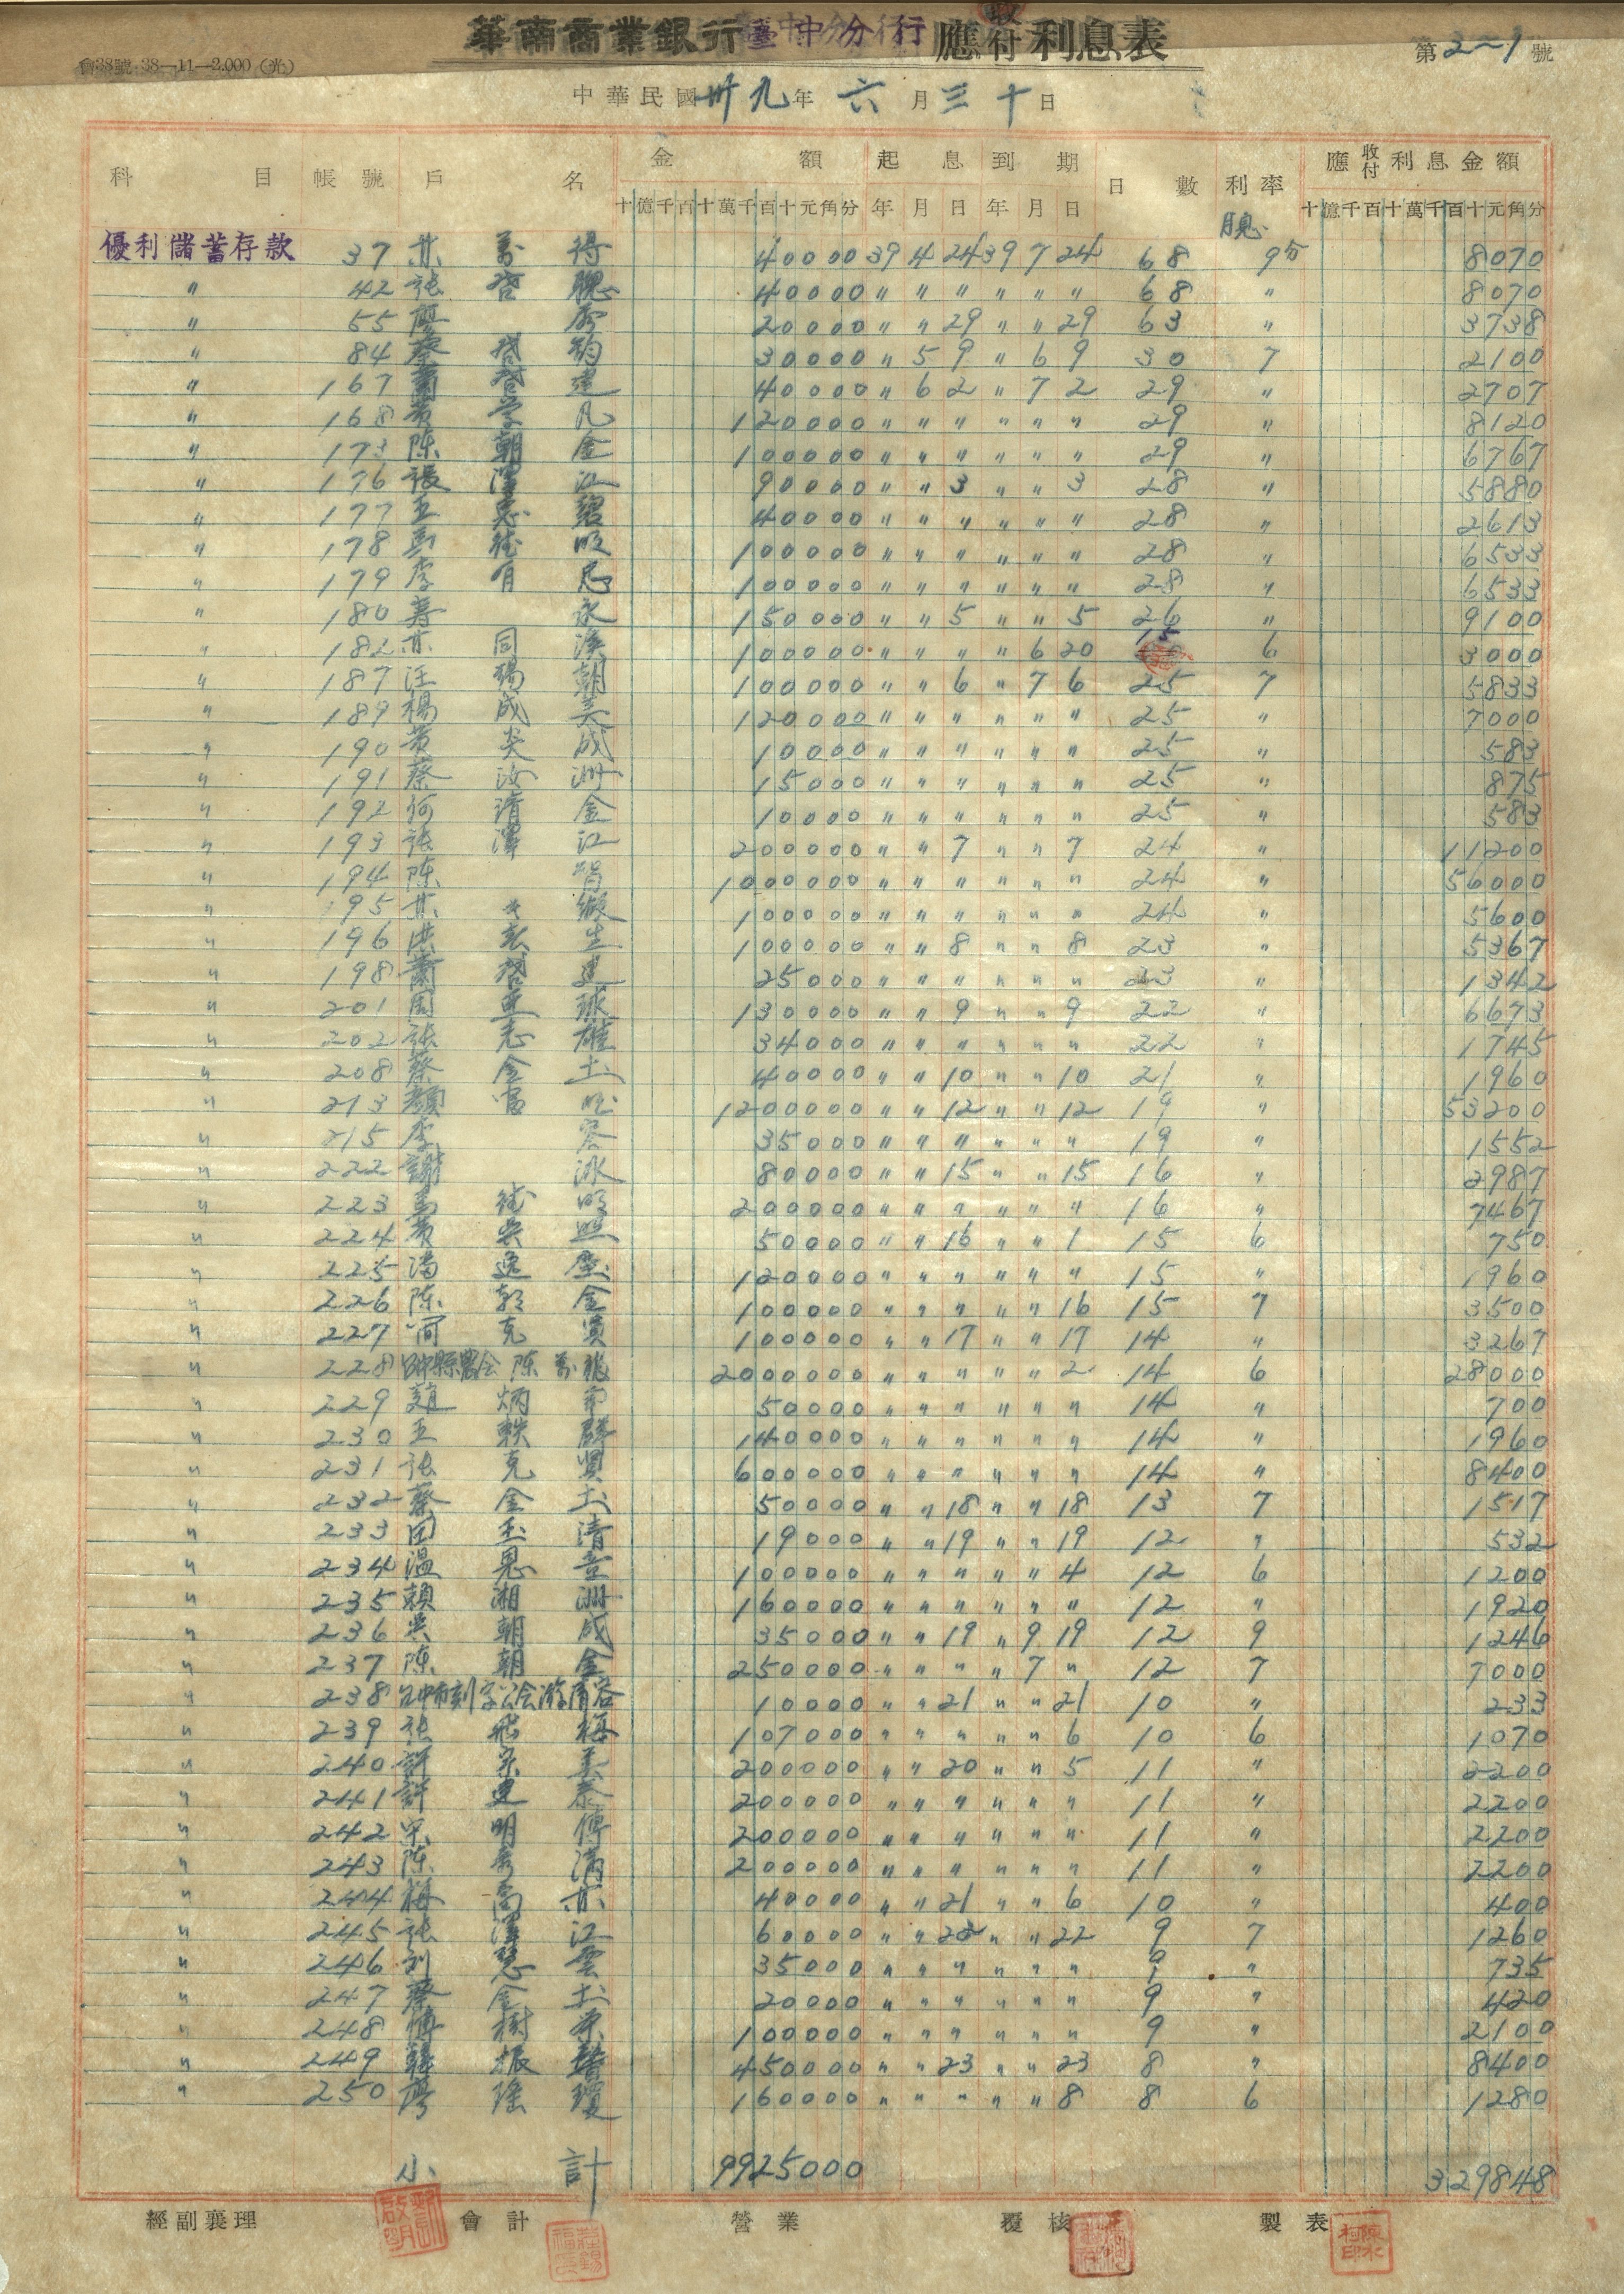 華南商業銀行臺中分行 應收付利息表
會38號 38—11—2.000(光)
第2~1號
中華民國卅九年六月三十日
科目 帳號 戶名 金額 起息 到期 日數 利率 應收付利息金額
十億千百十萬千百十元角分 年 月 日 年 月 日 十億千百十萬千百十元角分
優利儲蓄存款 37 萬得 40000 39 4 24 39 7 24 68 9 8070
〃 42 張啓聰 40000 〃 〃 〃 〃 〃 〃 68 〃 8070
〃 55 廖 20000 〃 〃 29 〃 〃 29 63 〃 3738
〃 84 蔡 鈞 30000 〃 5 9 〃 6 9 30 7 2100
〃 167 蕭啓建 40000 〃 6 2 〃 7 2 29 〃 2707
〃 168 黃学凡 120000 〃 〃 〃 〃 〃 〃 29 〃 8120
〃 173 陳朝金 100000 〃 〃 〃 〃 〃 〃 29 〃 6767
〃 176 張澤江 90000 〃 〃 3 〃 〃 3 28 〃 5880
〃 177 王 碧 40000 〃 〃 〃 〃 〃 〃 28 〃 2613
〃 178 馬 100000 〃 〃 〃 〃 〃 〃 28 〃 6533
〃 179 李有忍 100000 〃 〃 〃 〃 〃 〃 28 〃 6533
〃 180 壽永 150000 〃 〃 5 〃 〃 5 26 〃 9100
〃 182 同 100000 〃 〃 〃 〃 6 20 15 6 3000
〃 187 汪錫朝 100000 〃 〃 6 〃 7 6 25 7 5833
〃 189 楊成美 120000 〃 〃 〃 〃 〃 〃 25 〃 7000
〃 190 黃炎成 10000 〃 〃 〃 〃 〃 〃 25 〃 583
〃 191 蔡汝洲 15000 〃 〃 〃 〃 〃 〃 25 〃 875
〃 192 何清金 10000 〃 〃 〃 〃 〃 〃 25 〃 583
〃 193 張澤江 200000 〃 〃 7 〃 〃 7 24 〃 11200
〃 194 陳 1000000 〃 〃 〃 〃 〃 〃 24 〃 56000
〃 195 100000 〃 〃 〃 〃 〃 〃 24 〃 5600
〃 196 洪 生 100000 〃 〃 8 〃 〃 8 23 〃 5367
〃 198 蕭啓建 25000 〃 〃 〃 〃 〃 〃 23 〃 1342
〃 201 周 球 130000 〃 〃 9 〃 〃 9 22 〃 6673
〃 202 張志雄 34000 〃 〃 〃 〃 〃 〃 22 〃 1745
〃 208 蔡金土 40000 〃 〃 10 〃 〃 10 21 〃 1960
〃 213 顏富 1200000 〃 〃 12 〃 〃 12 19 〃 53200
〃 215 李容 35000 〃 〃 〃 〃 〃 〃 19 〃 1552
〃 222 謝 80000 〃 〃 15 〃 〃 15 16 〃 2987
〃 223 馬 200000 〃 〃 〃 〃 〃 〃 16 〃 7467
〃 224 黃 照 50000 〃 〃 16 〃 〃 1 15 6 750
〃 225 潘逸 120000 〃 〃 〃 〃 〃 〃 15 〃 1960
〃 226 陳朝金 100000 〃 〃 〃 〃 〃 16 15 7 3500
〃 227 簡克 100000 〃 〃 17 〃 〃 17 14 〃 3267
〃 228 台中縣農会 陳萬 2000000 〃 〃 〃 〃 〃 2 14 6 28000
〃 229 趙炳南 50000 〃 〃 〃 〃 〃 〃 14 〃 700
〃 230 王 麟 140000 〃 〃 〃 〃 〃 〃 14 〃 1960
〃 231 張克賢 600000 〃 〃 〃 〃 〃 〃 14 〃 8400
〃 232 蔡金土 50000 〃 〃 18 〃 〃 18 13 7 1517
〃 233 田玉清 19000 〃 〃 19 〃 〃 19 12 〃 532
〃 234 温恩 100000 〃 〃 〃 〃 〃 4 12 6 1200
〃 235 賴湘洲 160000 〃 〃 〃 〃 〃 〃 12 〃 1920
〃 236 吳朝成 35000 〃 〃 19 〃 9 19 12 9 1246
〃 237 陳朝金 250000 〃 〃 〃 〃 7 〃 12 7 7000
〃 238 台中市刻字公会游 容 10000 〃 〃 21 〃 〃 21 10 〃 233
〃 239 張 梅 107000 〃 〃 〃 〃 〃 6 10 6 1070
〃 240 許 美 200000 〃 〃 20 〃 〃 5 11 〃 2200
〃 241 許建泰 200000 〃 〃 〃 〃 〃 〃 11 〃 2200
〃 242 明傳 200000 〃 〃 〃 〃 〃 〃 11 〃 2200
〃 243 陳秀滿 200000 〃 〃 〃 〃 〃 〃 11 〃 2200
〃 244 40000 〃 〃 21 〃 〃 6 10 〃 400
〃 245 張澤江 60000 〃 〃 22 〃 〃 22 9 7 1260
〃 246 劉慧雲 35000 〃 〃 〃 〃 〃 〃 9 〃 735
〃 247 蔡金土 20000 〃 〃 〃 〃 〃 〃 9 〃 420
〃 248 傅樹 100000 〃 〃 〃 〃 〃 〃 9 〃 2100
〃 249 振 450000 〃 〃 23 〃 〃 23 8 〃 8400
〃 250 廖瑤瓊 160000 〃 〃 〃 〃 〃 8 8 6 1280
小計 9925000 329848
經副襄理 會計 營業 覆核 製表